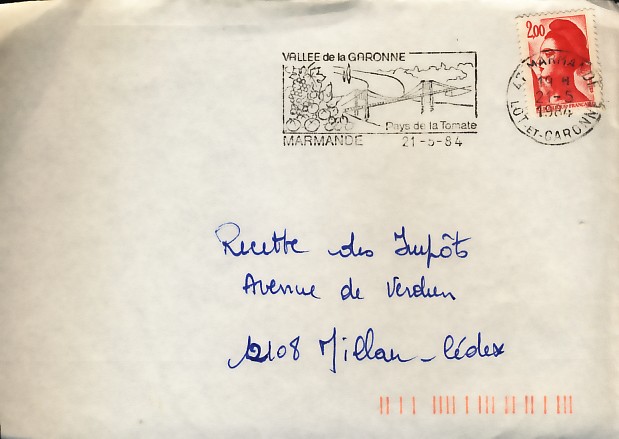 VALLEE de la GARONNE
Pays de la Tomate
MARMANDE 21-5-84
2,00
47 MARMANDE
19 H
21-5
1984
LOT-ET-GARONNE
Recette des Impôts
Avenue de Verdun
12108 Millau-Cédex